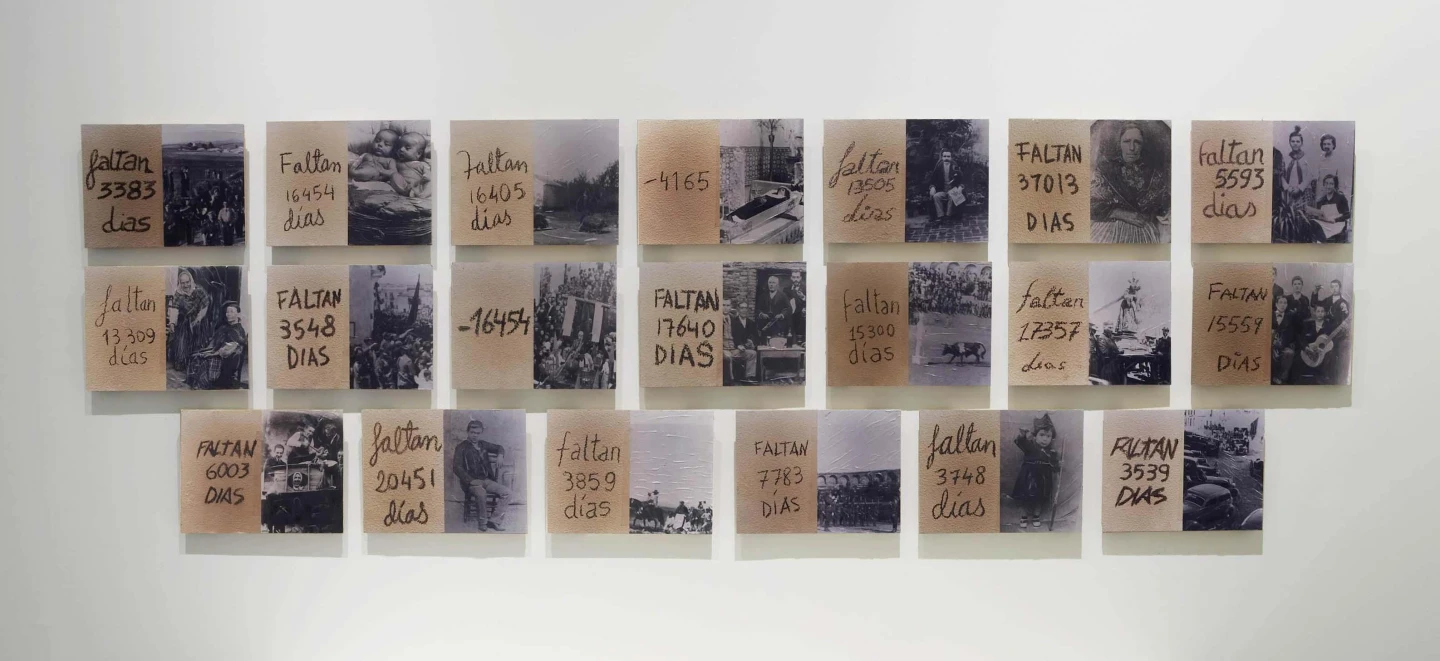 faltan
3383
dias
Faltan
16454
días
Faltan
16405
días
-4165
faltan
13505
dias
FALTAN
37013
DIAS
faltan
5593
dias
faltan
13309
días
FALTAN
3548
DIAS
-16454
FALTAN
17640
DIAS
faltan
15300
días
faltan
17357
dias
FALTAN
15559
DÍAS
FALTAN
6003
DIAS
faltan
20451
días
faltan
3859
días
FALTAN
7783
DÍAS
faltan
3748
días
FALTAN
3539
DIAS